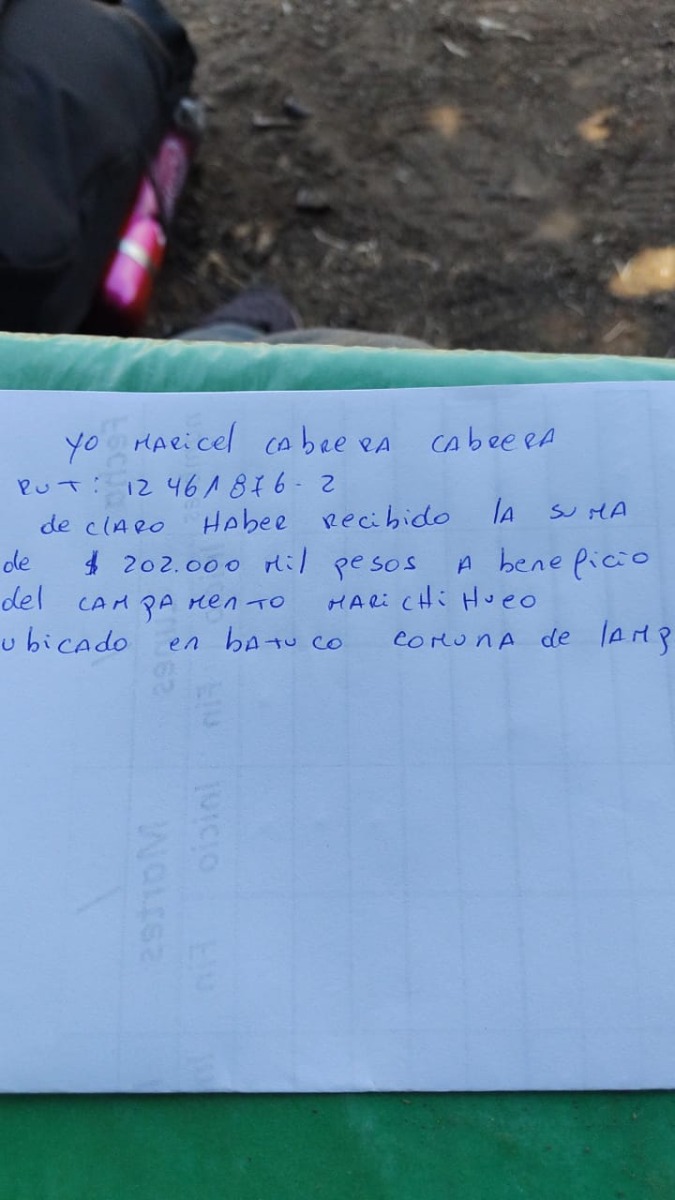 YO MARicel CABRERA CABRERA
RUT: 12 461 876-2
de clARO HABER Recibido lA SUMA
de $ 202.000 Mil pesos A beneficio
del CAMPAMENTO MARiCHiHUeO
ubicADO en bATUCO COMUNA de lAMP
Fecha
Inicio Fin Inicio Fin
Martes